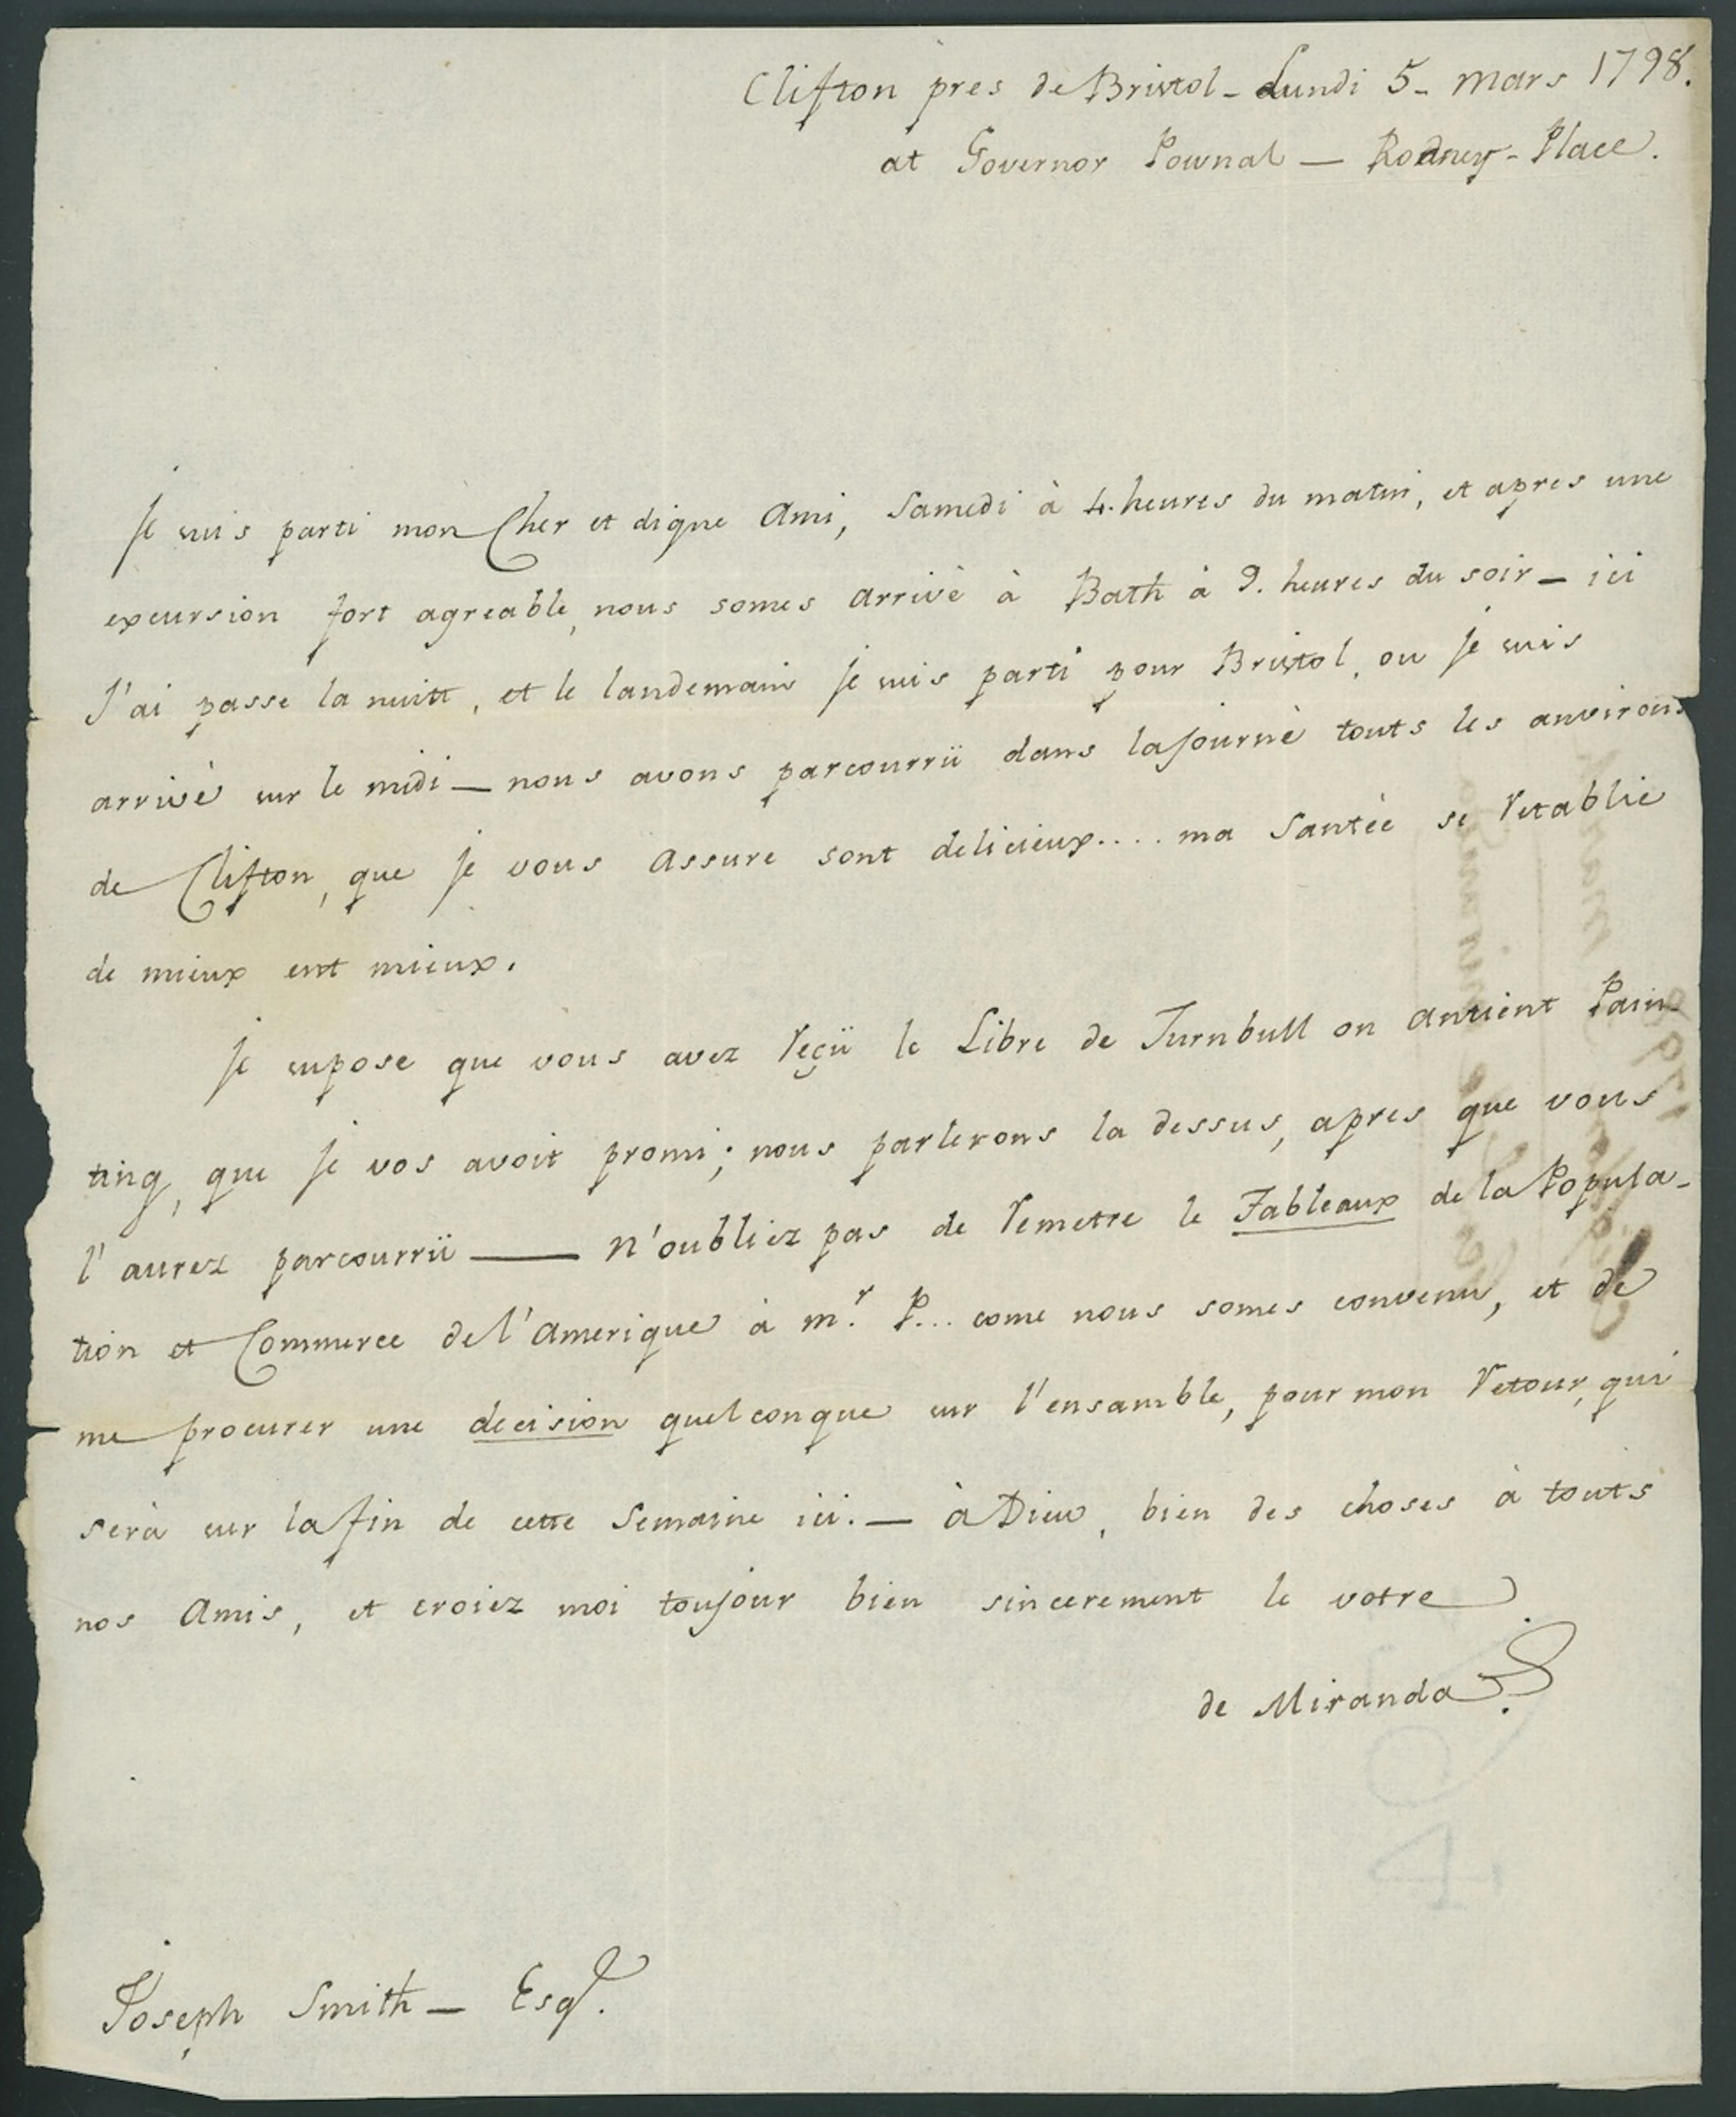 Clifton pres de Bristol - Lundi 5 - mars 1798.
at Governor Pownal — Rodney - Place.
Je suis parti mon Cher et digne Ami, Samedi à 4. heures du matin, et apres une
excursion fort agreable, nous somes arrivè à Bath à 9. heures du soir — ici
J'ai passe la nuitt, et le landemain je suis parti pour Bristol, ou je suis
arrivè sur le midi — nous avons parcourrü dans la journè touts les anvirons
de Clifton, que je vous assure sont delicieux.... ma Santèe se retablie
de mieux ent mieux.
Je supose que vous avez reçü le Libre de Turnbull on antient Pain-
ting, que je vos avoit promi; nous parlerons la dessus, apres que vous
l'aurez parcourrü —— N'oubliez pas de remetre le Tableaux de la Popula-
tion et Commerce de l'Amerique à mr. P... come nous somes convenu, et de
me procurer une decision quelconque sur l'ensamble, pour mon retour, qui
serà sur la fin de cette Semaine ici. — à Dieu, bien des choses à touts
nos Amis, et croiez moi toujour bien sincerement le votre
de Miranda
Joseph Smith — Esqr.